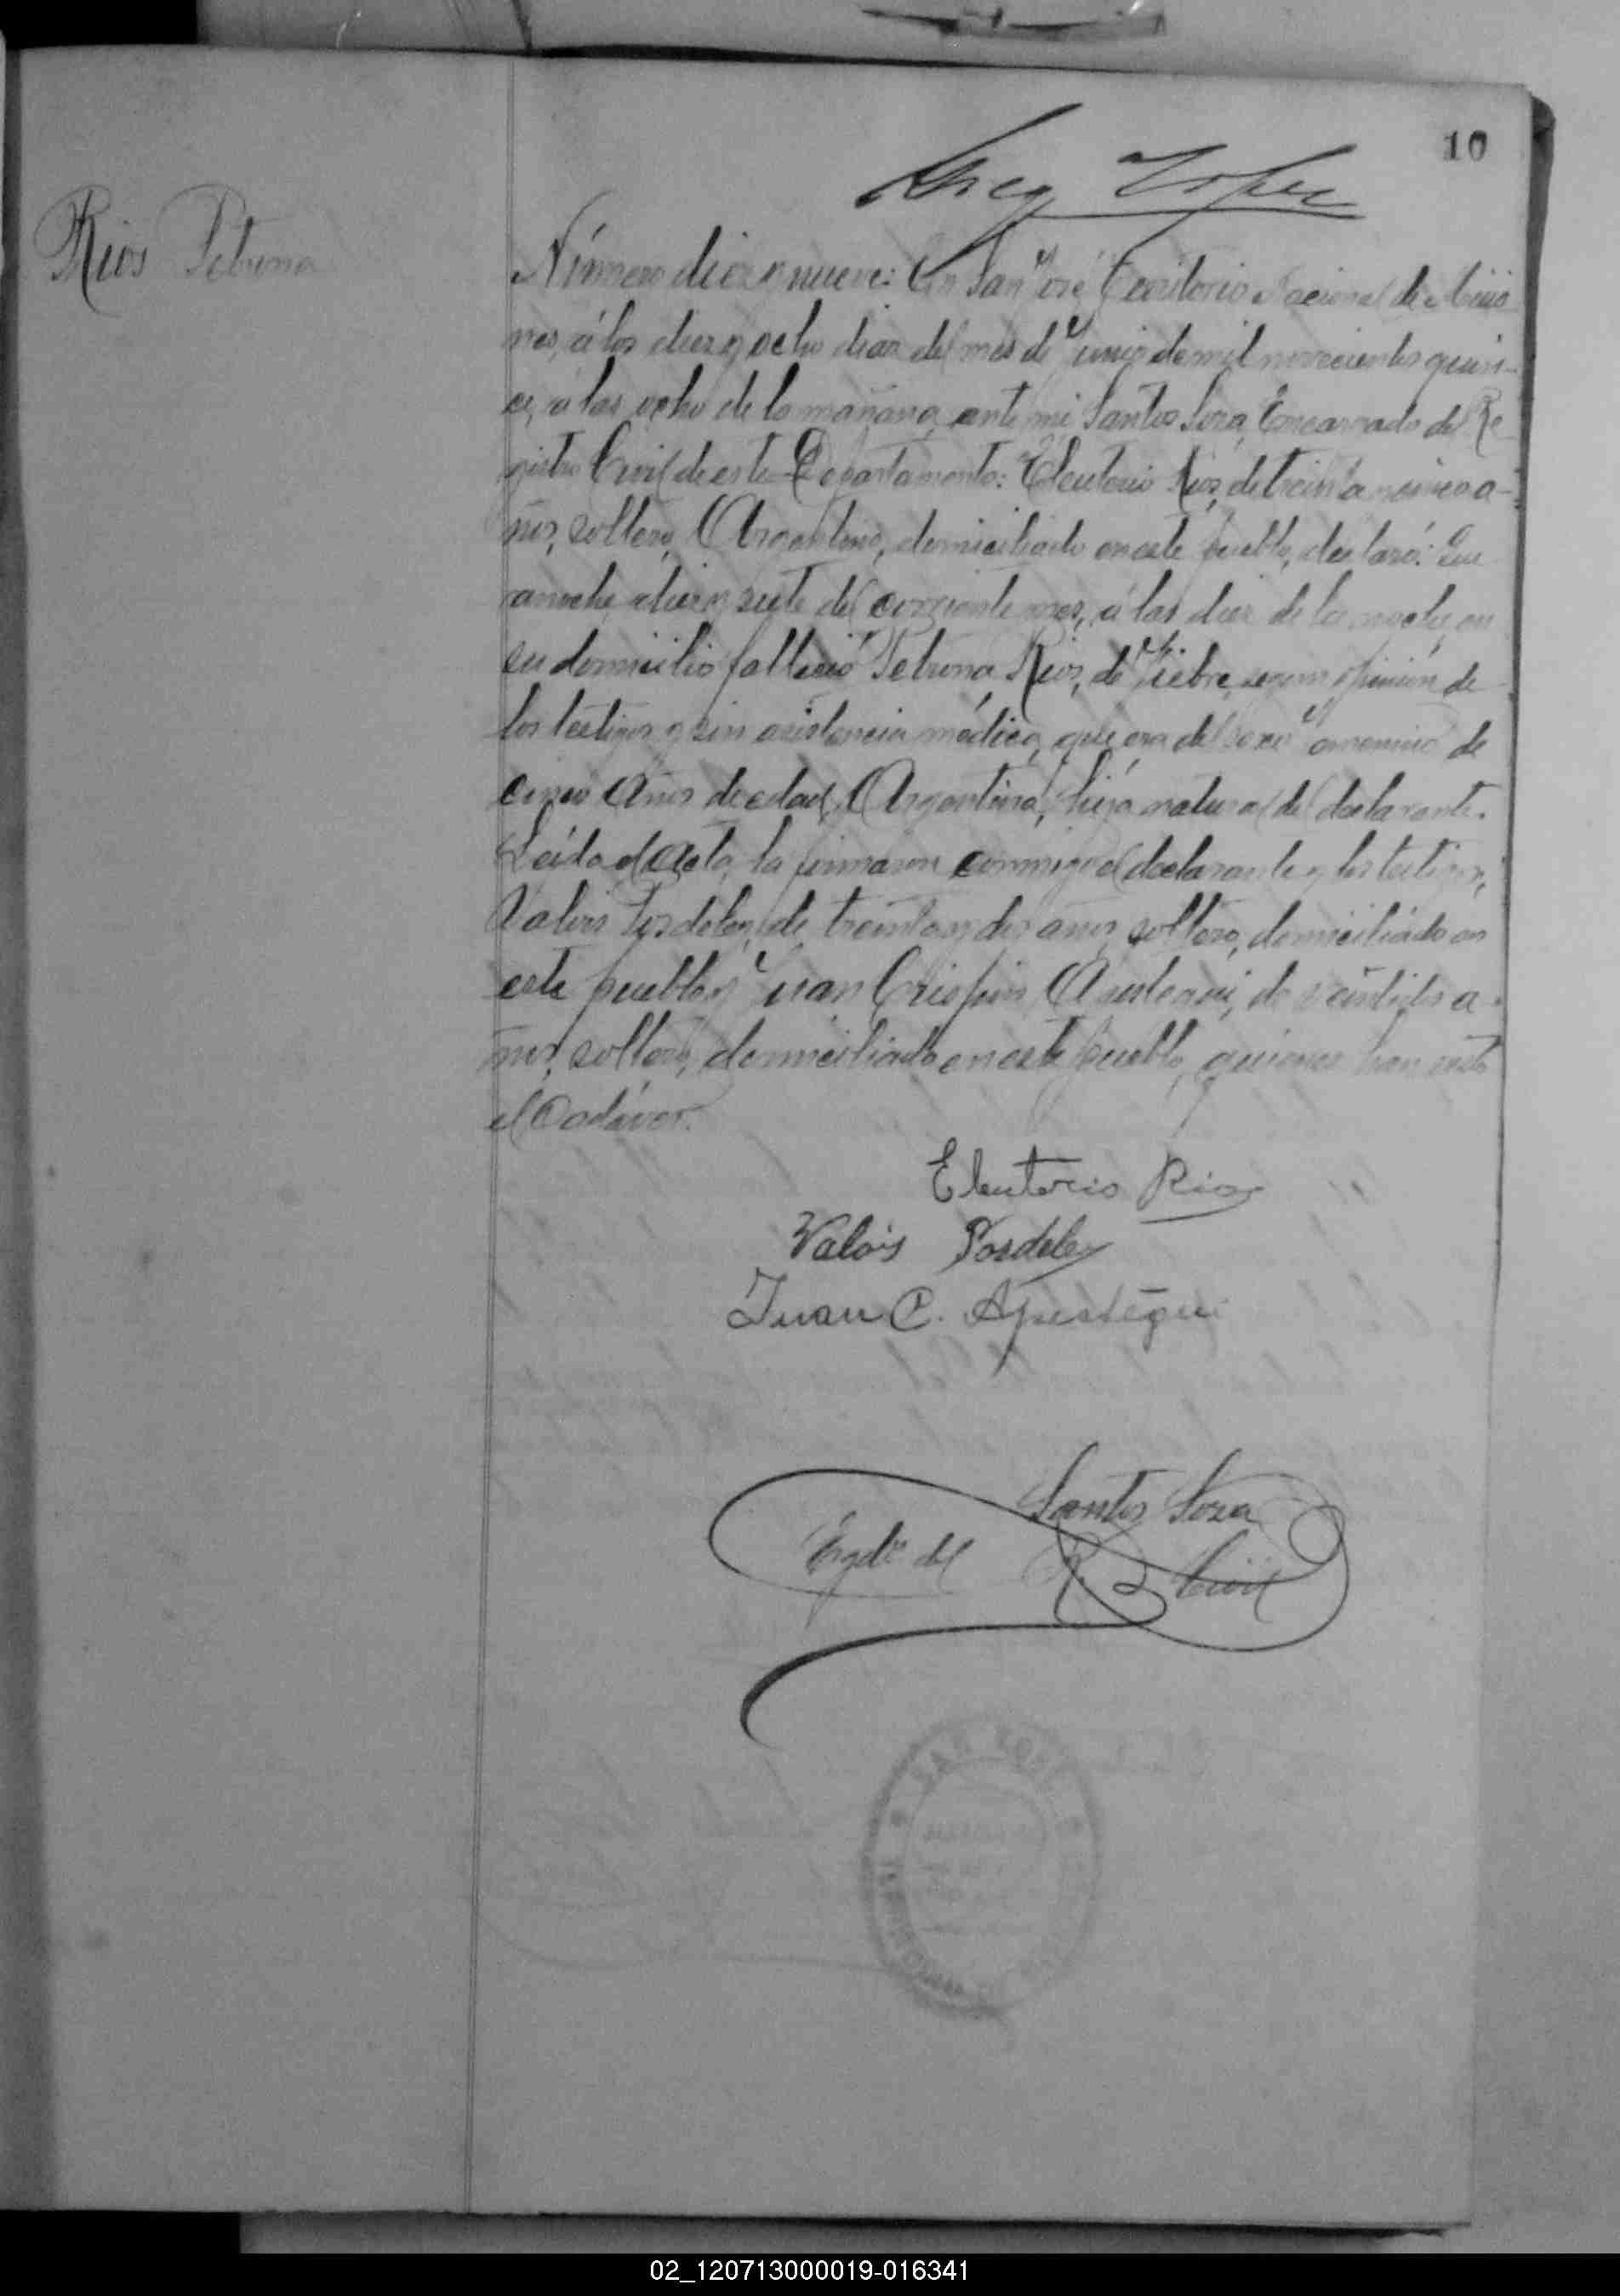 10
Greg Lopez
Rios Petrona
Número diez y nueve: En San José, Territorio Nacional de Misio
nes, á los diez y ocho dias del mes de Junio de mil novecientos quin-
ce, a las ocho de la mañana, ante mi Santos Soza, Encargado del Re
gistro Civil de este Departamento: Eleuterio Rios, de treinta y cinco a-
ños, soltero, Argentino, domiciliado en este pueblo, declaró: Que
anoche, diez y siete del corriente mes, á las diez de la noche, en
su domicilio falleció Petrona Rios, de Fiebre, segun opinión de
los testigos y sin asistencia médica, que era del sexo Femenino de
cinco Años de edad, Argentina, hija natural del declarante.
Leida el Acta, la firmaron conmigo el declarante y los testigos,
Valois Posdeley, de treinta y dos años, soltero, domiciliado en
este pueblo y Juan Crispin Apestegui, de veintidos a-
ños, soltero, domiciliado en este pueblo, quienes han visto
el Cadáver.
Eleuterio Rios
Valois Posdeley
Juan C. Apestegui
Santos Soza
Engdo del R. Civil
SAN JOSE
02_120713000019-016341